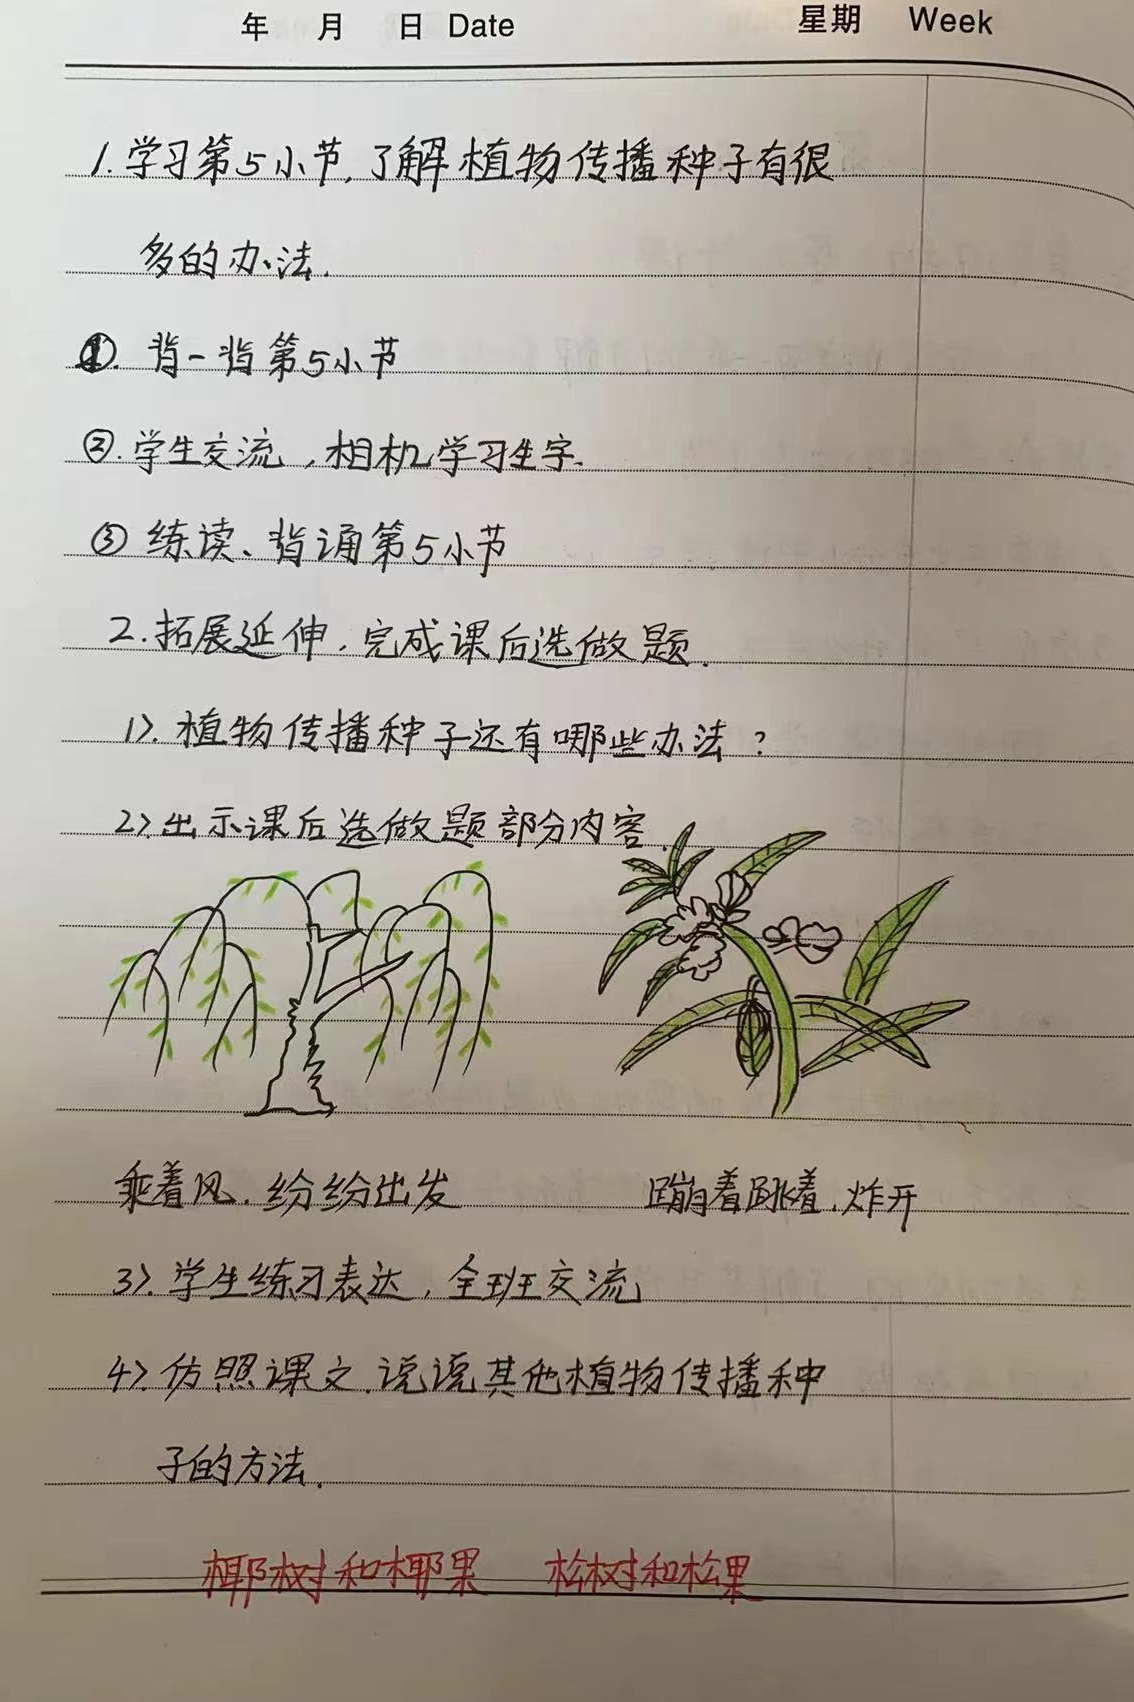 年 月 日 Date 星期 Week
1.学习第5小节,了解植物传播种子有很
多的办法.
①.背一背第5小节
②.学生交流,相机学习生字.
③练读、背诵第5小节
2.拓展延伸,完成课后选做题.
1>.植物传播种子还有哪些办法?
2>.出示课后选做题部分内容.
乘着风.纷纷出发 蹦着跳着,炸开
3>.学生练习表达,全班交流
4>.仿照课文.说说其他植物传播种
子的方法.
椰树和椰果 松树和松果